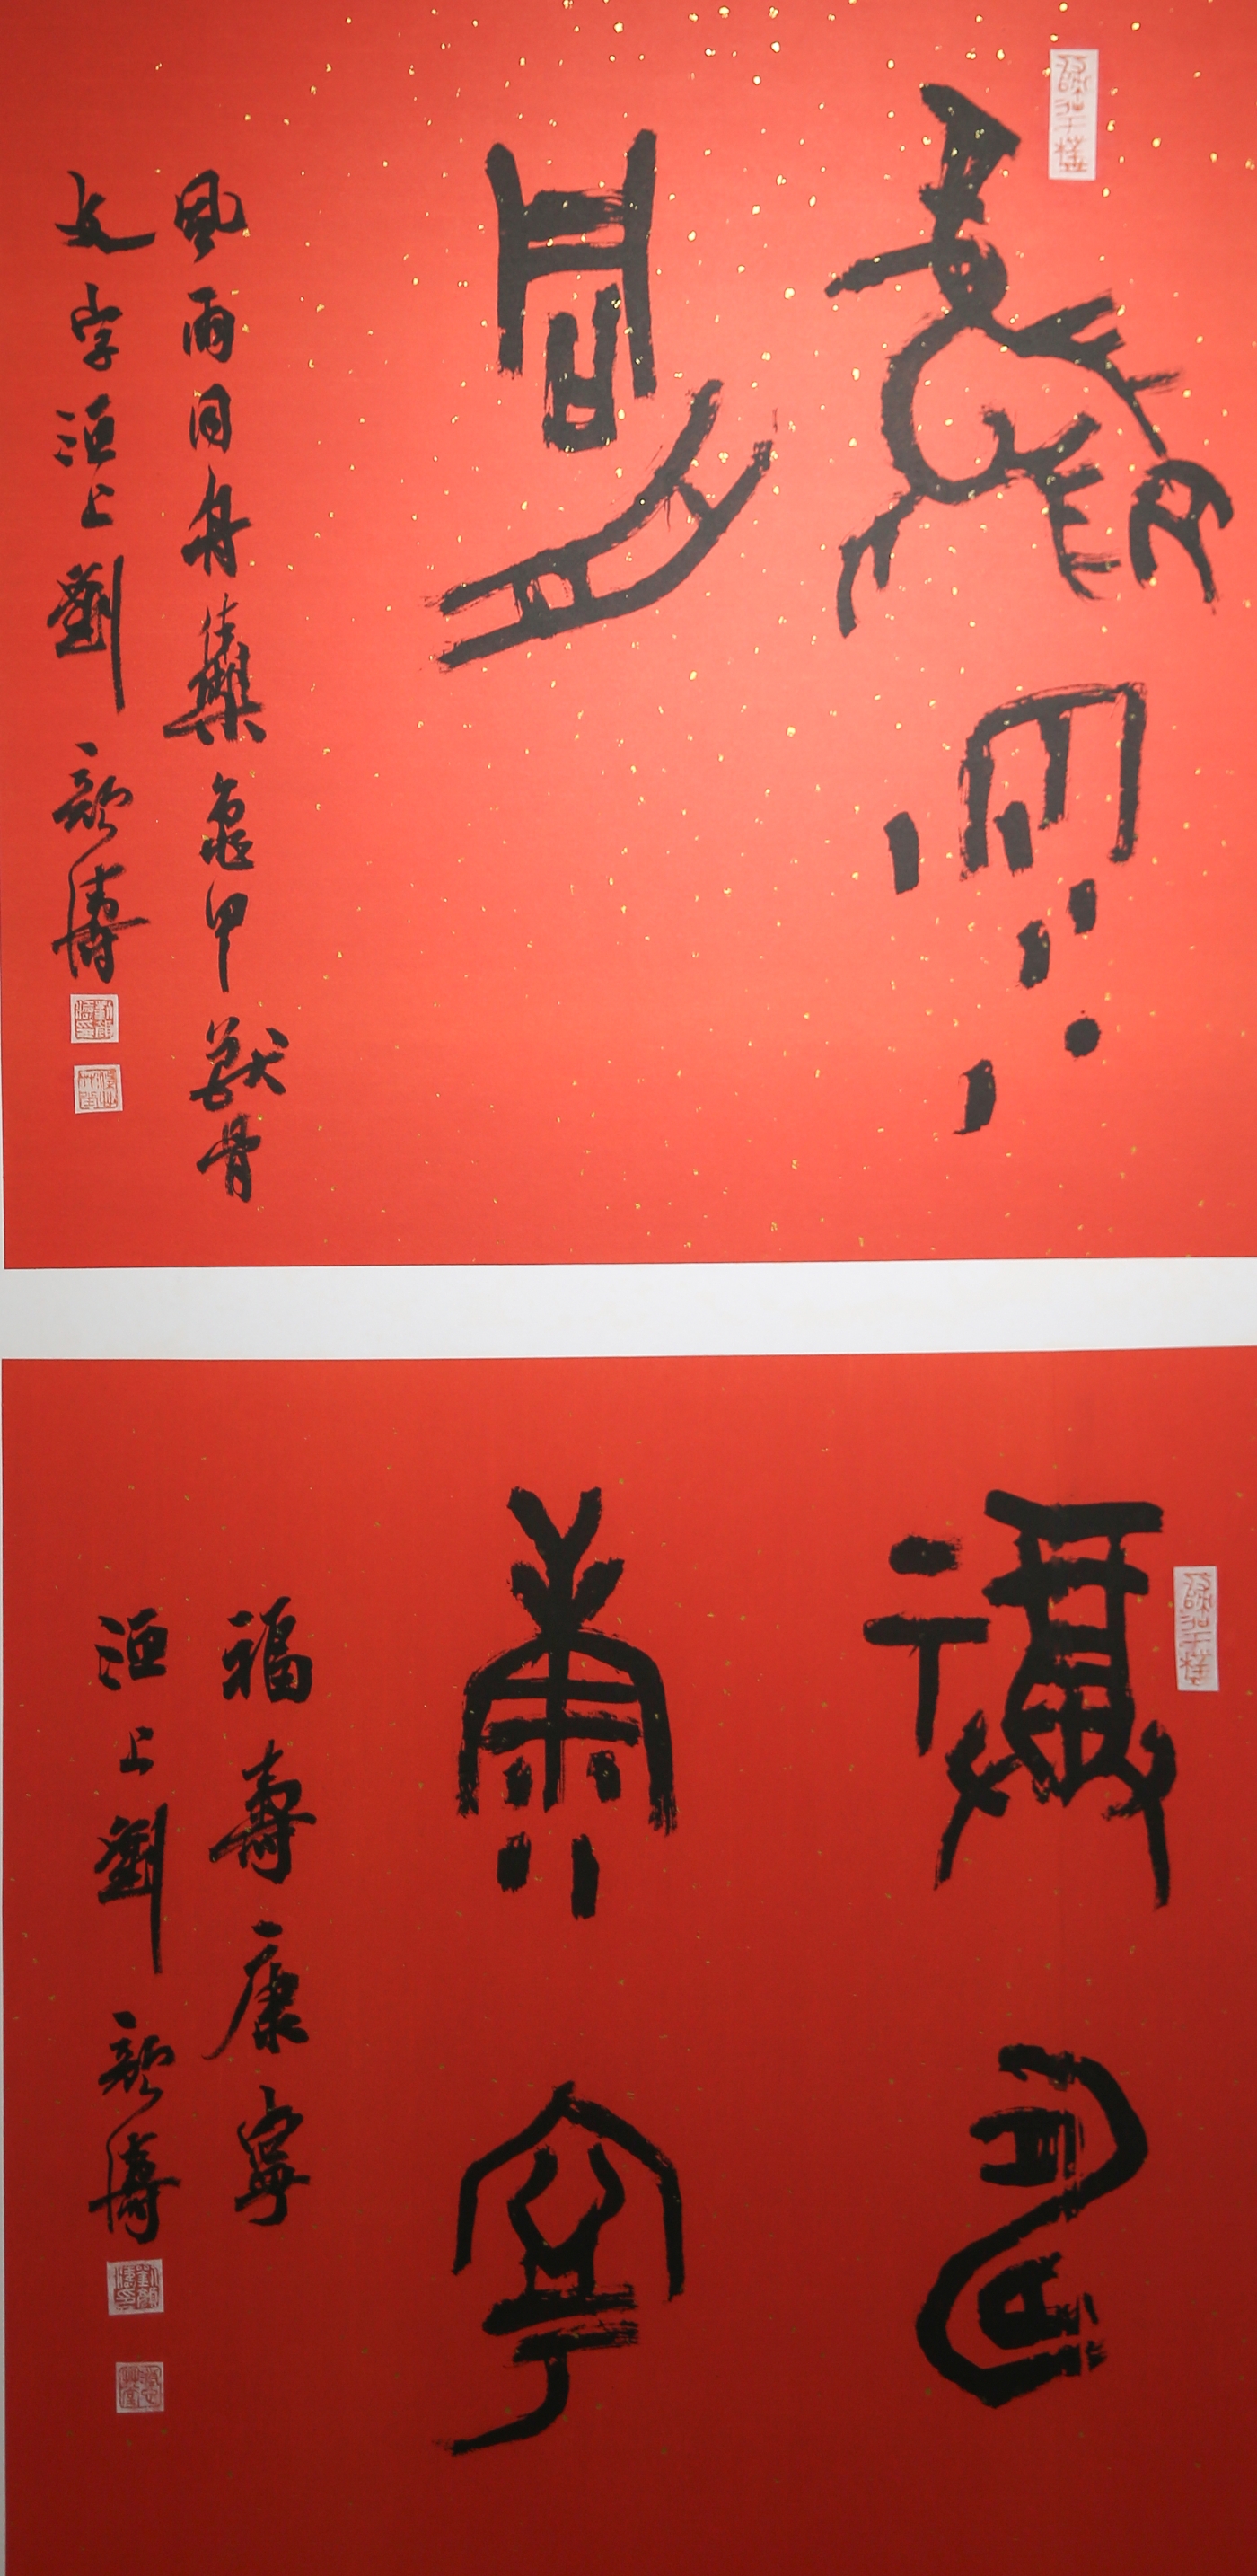 風雨
同舟
風雨同舟集龜甲獸骨
文字洹上劉顏濤
福壽
康寧
福壽康寧
洹上劉顏濤